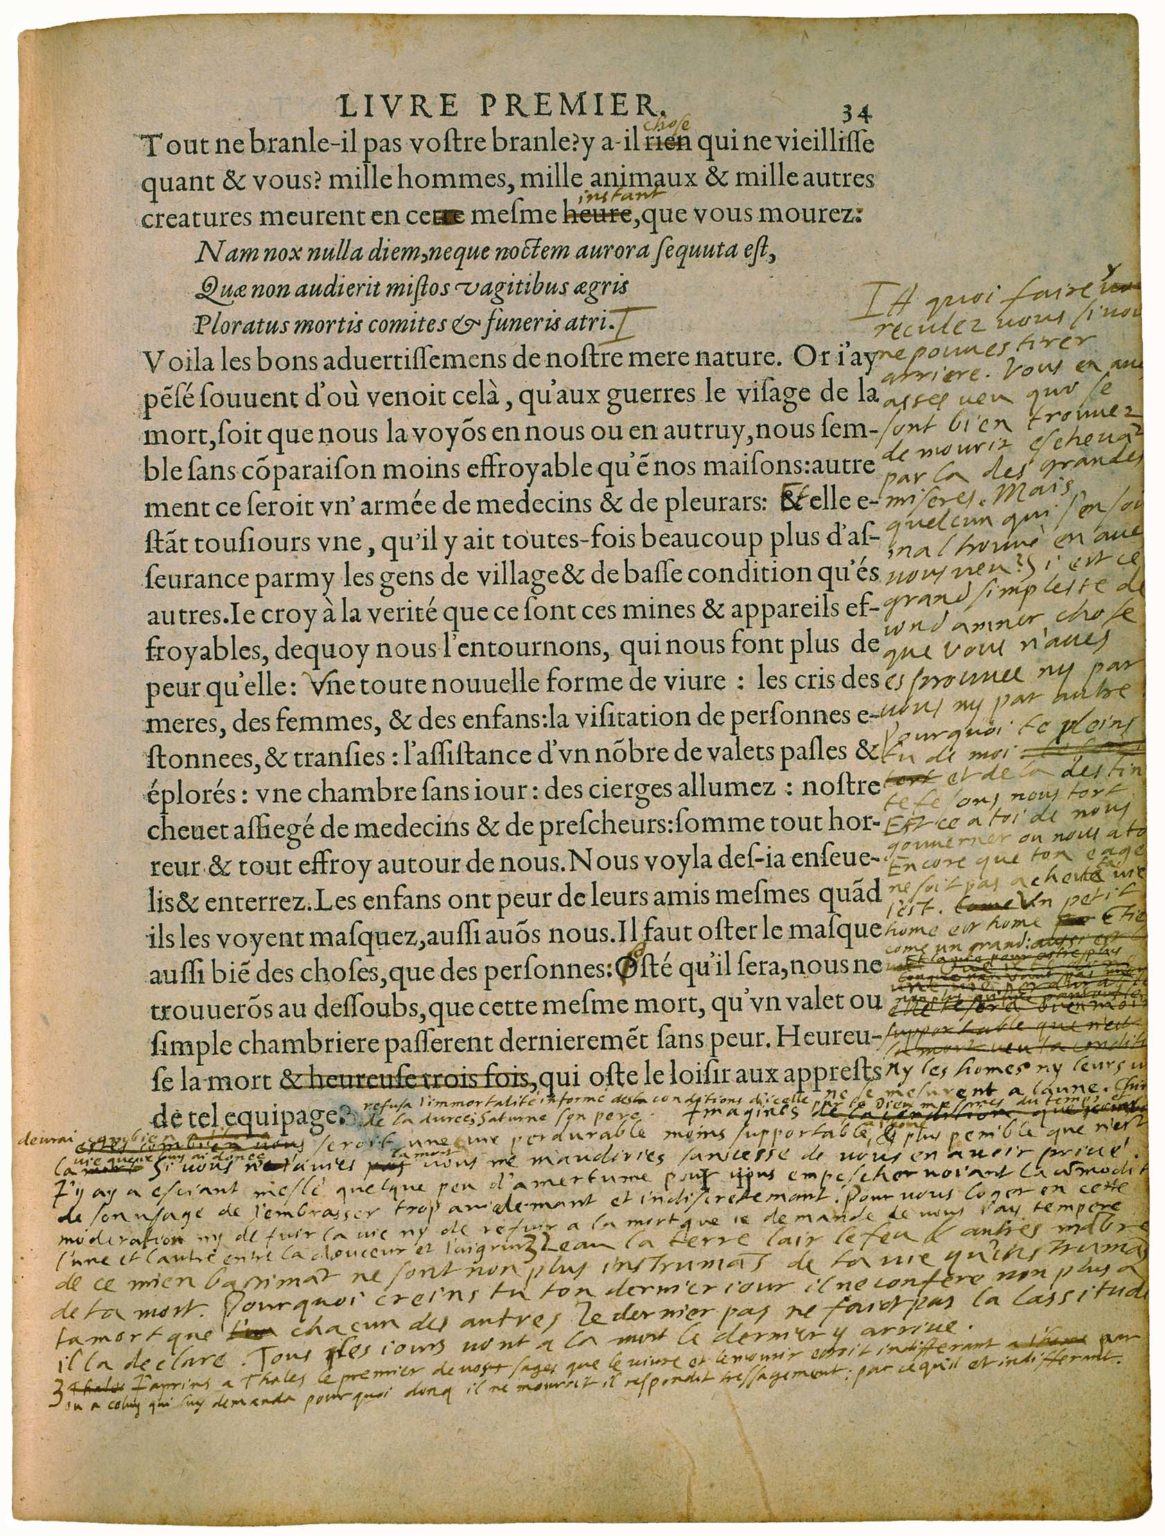 LIVRE PREMIER. 34
Tout ne branle-il pas voſtre branle? y a-il rien chose qui ne vieilliſſe
quant & vous? mille hommes, mille animaux & mille autres
creatures meurent en cette meſme heure instant, que vous mourez:
Nam nox nulla diem, neque noctem aurora ſequuta eſt,
Quæ non audierit miſtos vagitibus ægris
Ploratus mortis comites & funeris atri. I
Voila les bons aduertiſſemens de noſtre mere nature. Or i'ay
pẽſé ſouuent d'où venoit celà, qu'aux guerres le viſage de la
mort, ſoit que nous la voyõs en nous ou en autruy, nous ſem-
ble ſans cõparaiſon moins effroyable qu'ẽ nos maiſons: autre
ment ce ſeroit vn' armée de medecins & de pleurars: Et elle e-
ſtãt touſiours vne, qu'il y ait toutes-fois beaucoup plus d'aſ-
ſeurance parmy les gens de village & de baſſe condition qu'és
autres. Ie croy à la verité que ce ſont ces mines & appareils ef-
froyables, dequoy nous l'entournons, qui nous font plus de
peur qu'elle: Vne toute nouuelle forme de viure : les cris des
meres, des femmes, & des enfans: la viſitation de perſonnes e-
ſtonnees, & tranſies : l'aſſiſtance d'vn nõbre de valets paſles &
éplorés : vne chambre ſans iour : des cierges allumez : noſtre
cheuet aſſiegé de medecins & de preſcheurs: ſomme tout hor-
reur & tout effroy autour de nous. Nous voyla deſ-ia enſeue-
lis & enterrez. Les enfans ont peur de leurs amis meſmes quãd
ils les voyent maſquez, auſſi auõs nous. Il faut oſter le maſque
auſſi biẽ des choſes, que des perſonnes: Oſté qu'il ſera, nous ne
trouuerõs au deſſoubs, que cette meſme mort, qu'vn valet ou
ſimple chambriere paſſerent dernieremẽt ſans peur. Heureu-
ſe la mort & heureuſe trois fois, qui oſte le loiſir aux appreſts
de tel equipage.
I A quoi faire y
reculez vous si vou
ne pouves tirer
arriere. Vous en aue
asses veu qui se
sont bien trouuez
de mourir escheuãt
par la des grandes
miseres. Mais
quelcun qui s'en soit
mal trouué en aues
vous veu? Si est ce
grand simplesse de
condamner chose
que vous n'aues
esprouuee ny par
vous ny par autre
Pourquoi te pleins
tu de moi
et de la destin
te fesons nous tort
Est ce a toi de nous
gouuerner ou nous a toi
Encore que ton eage
ne soit pas acheué ta vie
l'est. Vn petit
home est home
come un grand:
supportable que n'est
ny les homes ny leurs vi
ne se mesurent a l'aune. Chir
refusa l'immortalité informe des conditions d'icelle par le Dieu mesmes du temps et
de la duree Saturne son pere. Imagines
de vrai combien seroit une vie perdurable moins supportable, & plus penible que n'est
la vie que ie luy ai donee Si vous n'auies la mort vous me maudiries sans cesse de vous en auoir priué.
I'y ay a esciant meslé quelque peu d'amertume pour vous empescher voiant la cõmodit
de son usage de l'embrasser trop auidemant et indiscretemant. Pour vous loger en cette
moderation ny de fuir la vie ny de refuir a la mort que ie demande de vous i'ay temperé
l'une et l'autre entre la douceur et l'aigrur 3 L'eau la terre l'air le feu & autres mãbre
de ce mien bastimãt ne sont non plus instrumãs de ta vie qu'instrumãs
de ta mort. Pourquoi creins tu ton dernier iour il ne confere non plus a
ta mort que chacun des autres Le dernier pas ne faict pas la lassitude
il la declare. Tous les iours vont a la mort le dernier y arriue.
3 I'aprins a Thales le premier de vos sages que le viure et le mourir estoit indifferant par
ou a celuy qui luy demanda pourquoi donq il ne mouroit il respondit tressagement: par ce qu'il est indifferant.